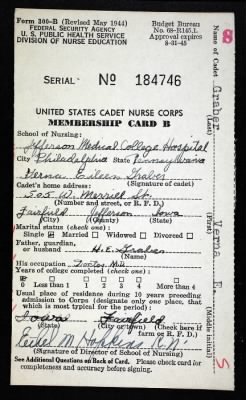 Form 300-B (Revised May 1944)
FEDERAL SECURITY AGENCY
U. S. PUBLIC HEALTH SERVICE
DIVISION OF NURSE EDUCATION
Budget Bureau
No. 68-R145.1.
Approval expires
8-31-45
SERIAL No 184746
UNITED STATES CADET NURSE CORPS
MEMBERSHIP CARD B
School of Nursing:
Jefferson Medical College Hospital
City Philadelphia State Pennsylvania
Verna Eileen Graber
(Signature of cadet)
Cadet's home address:
505 W. Merrill St.
(Number and street, or R. F. D.)
Fairfield Jefferson Iowa
(City) (County) (State)
Marital status (check one):
Single Married Widowed Divorced
Father, guardian,
or husband H. E. Graber
(Name)
His occupation
Years of college completed (check one):
0 Less than 1 1 2 3 4 More than 4
Usual place of residence during 10 years preceding
admission to Corps (designate only one place, that
which is most typical for the period):
Iowa Fairfield
(State) (City or town) (Check here if
farm or R. F. D.)
Ethel M Hopkins R.N.
(Signature of Director of School of Nursing)
See Additional Questions on Back of Card. Please check card for
completeness and accuracy before signing.
Name of Cadet Graber Verna E.
(Last) (First) (Middle initial)
8
5